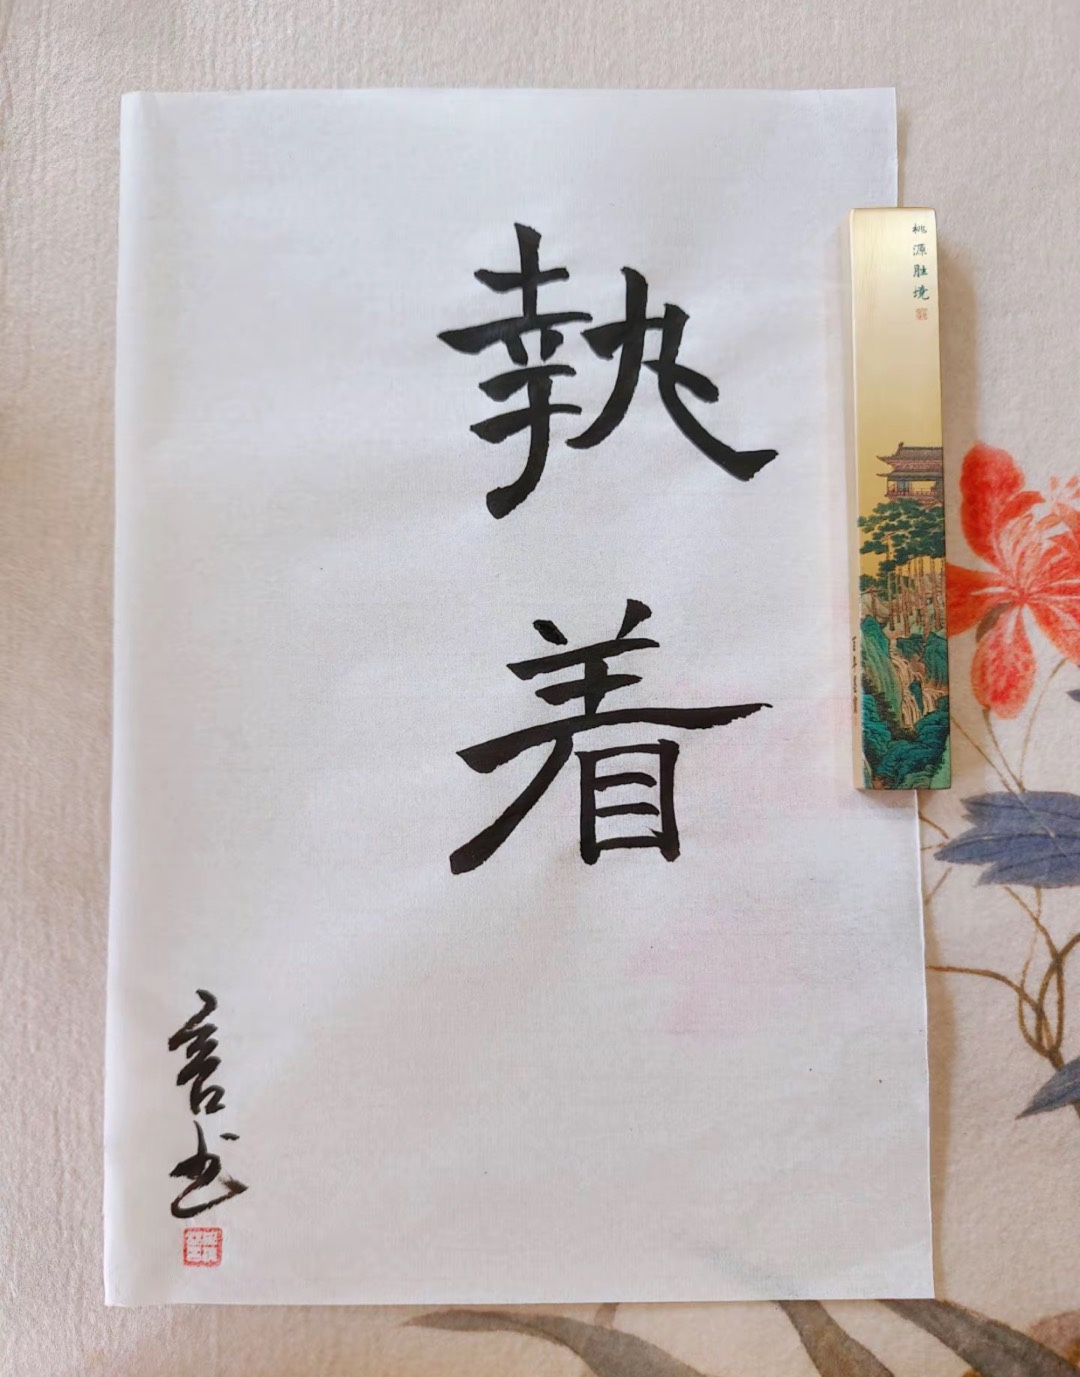 執着
言书
桃源胜境